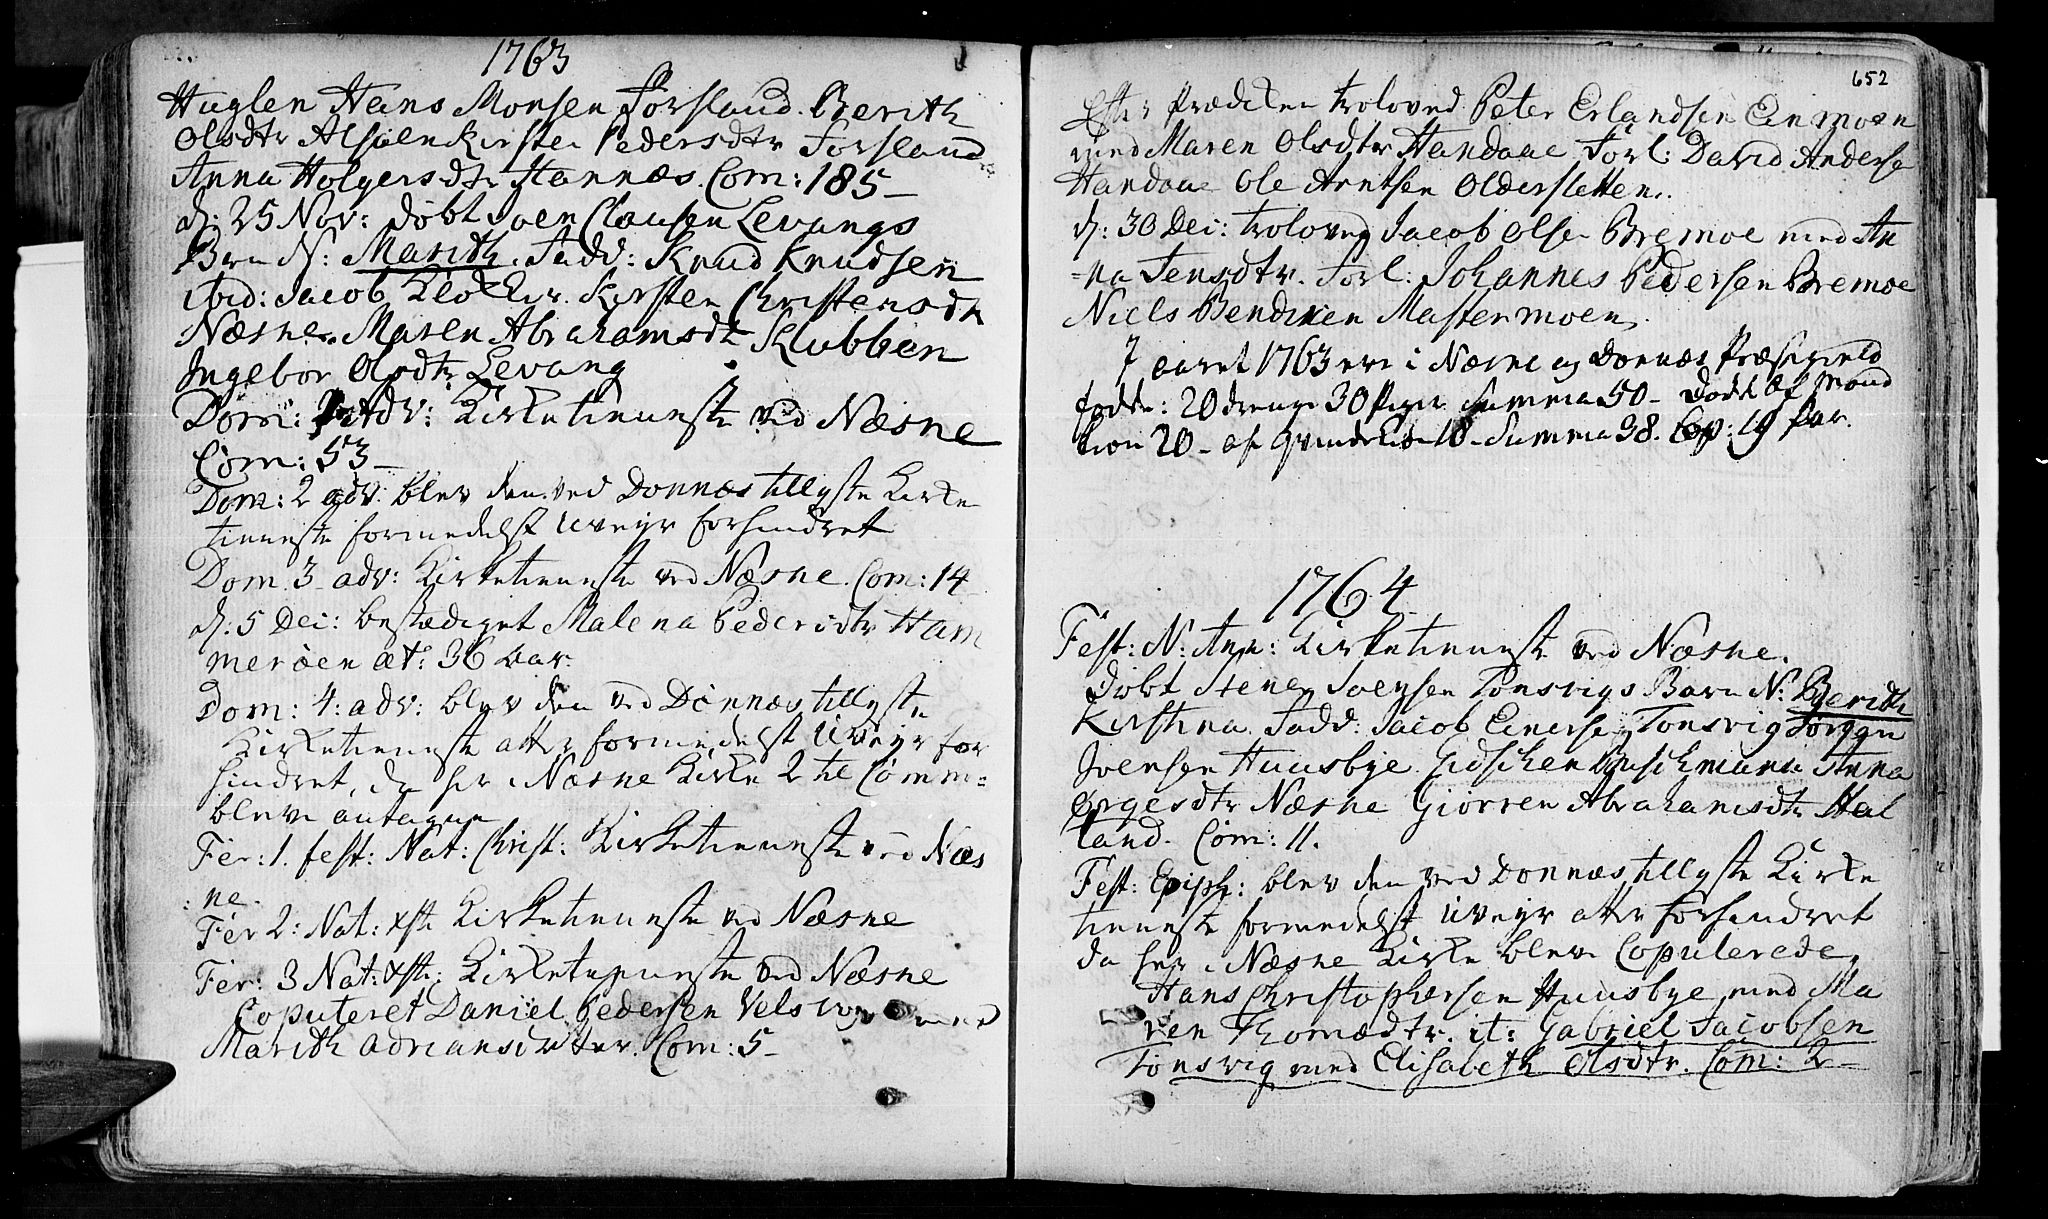 1763
Huglen Hans Monsen Forsland. Berith
Olsdtr Alsøen Kirsten Pedersdtr Forsland
Anna Holgersdtr Hannæs. Com: 185
d: 25 Nov: døbt Joen Clausen Levangs
Barn N: Marith. Fadd: Knud Knudsen
ibid: Jacob Klokker. Kirsten Christensdtr
Næsne. Maren Abrahamsdtr Klubben
Ingebor Olsdtr Levang
Dom: 1 Adv: Kirketieneste ved Næsne
Com: 53
Dom: 2 adv: blev den ved Dønnæs tillyste Kirke
tieneste formedelst Uveyr forhindret
Dom. 3 adv: Kirketieneste ved Næsne. Com: 14
d: 5 Dec: bestædiget Malena Pedersdtr Ham
merøen æt: 36 aar.
Dom: 4: adv: blev den ved Dønnæs tillyste
Kirketieneste atter formedelst Uveyr for
hindret, da her i Næsne Kirke 2 til Comm:
bleve antagne
Fer: 1. fest: Nat: Christ: Kirketieneste ved Næs
ne.
Fer 2: Nat: Xsti Kirketieneste ved Næsne
Fer: 3 Nat: Xsti: Kirketieneste ved Næsne
Copuleret Daniel Pedersen med
Marith Adriansdatter. Com: 5
652
Efter Prædiken troloved Peter Erlandsen Einmoen
med Maren Olsdtr Handaae Forl: David Anderse
Handaae Ole Arntsen Oldersletten.
d: 30 Dec: troloved Jacob Olsen Bremoe med An
na Jensdtr. Forl: Johannes Pedersen Bremoe
Niels Bendixen Mastermoen.
I aaret 1763 ere i Næsne og Dønnæs Præstegield
fødde: 20 drenge 30 Piger Summa 50 - Døde af Mand
kion 20 - af Qvindekion 18 - Summa 38. Cop: 19 Par.
1764
Fest: N: Ann: Kirketieneste ved Næsne.
Døbt Stenen Joensen Tonsvigs Barn N: Berith
Kirstina. Fadd: Jacob Einersen Tonsvig Jørgen
Joensen Huusbye. Anna
Ørgesdtr Næsne Giørren Abrahamsdtr Hal
land. Com: 11.
Fest: Epiph: blev den ved Dønnæs tillyste Kirke
tieneste formedelst Uveyr atter forhindret
da her i Næsne Kirke blev Copulerede
Hans Christophersen Huusbye med Ma
ren Thomædtr. it: Gabriel Jacobsen
Tonsvig med Elisabeth Olsdtr. Com: 2